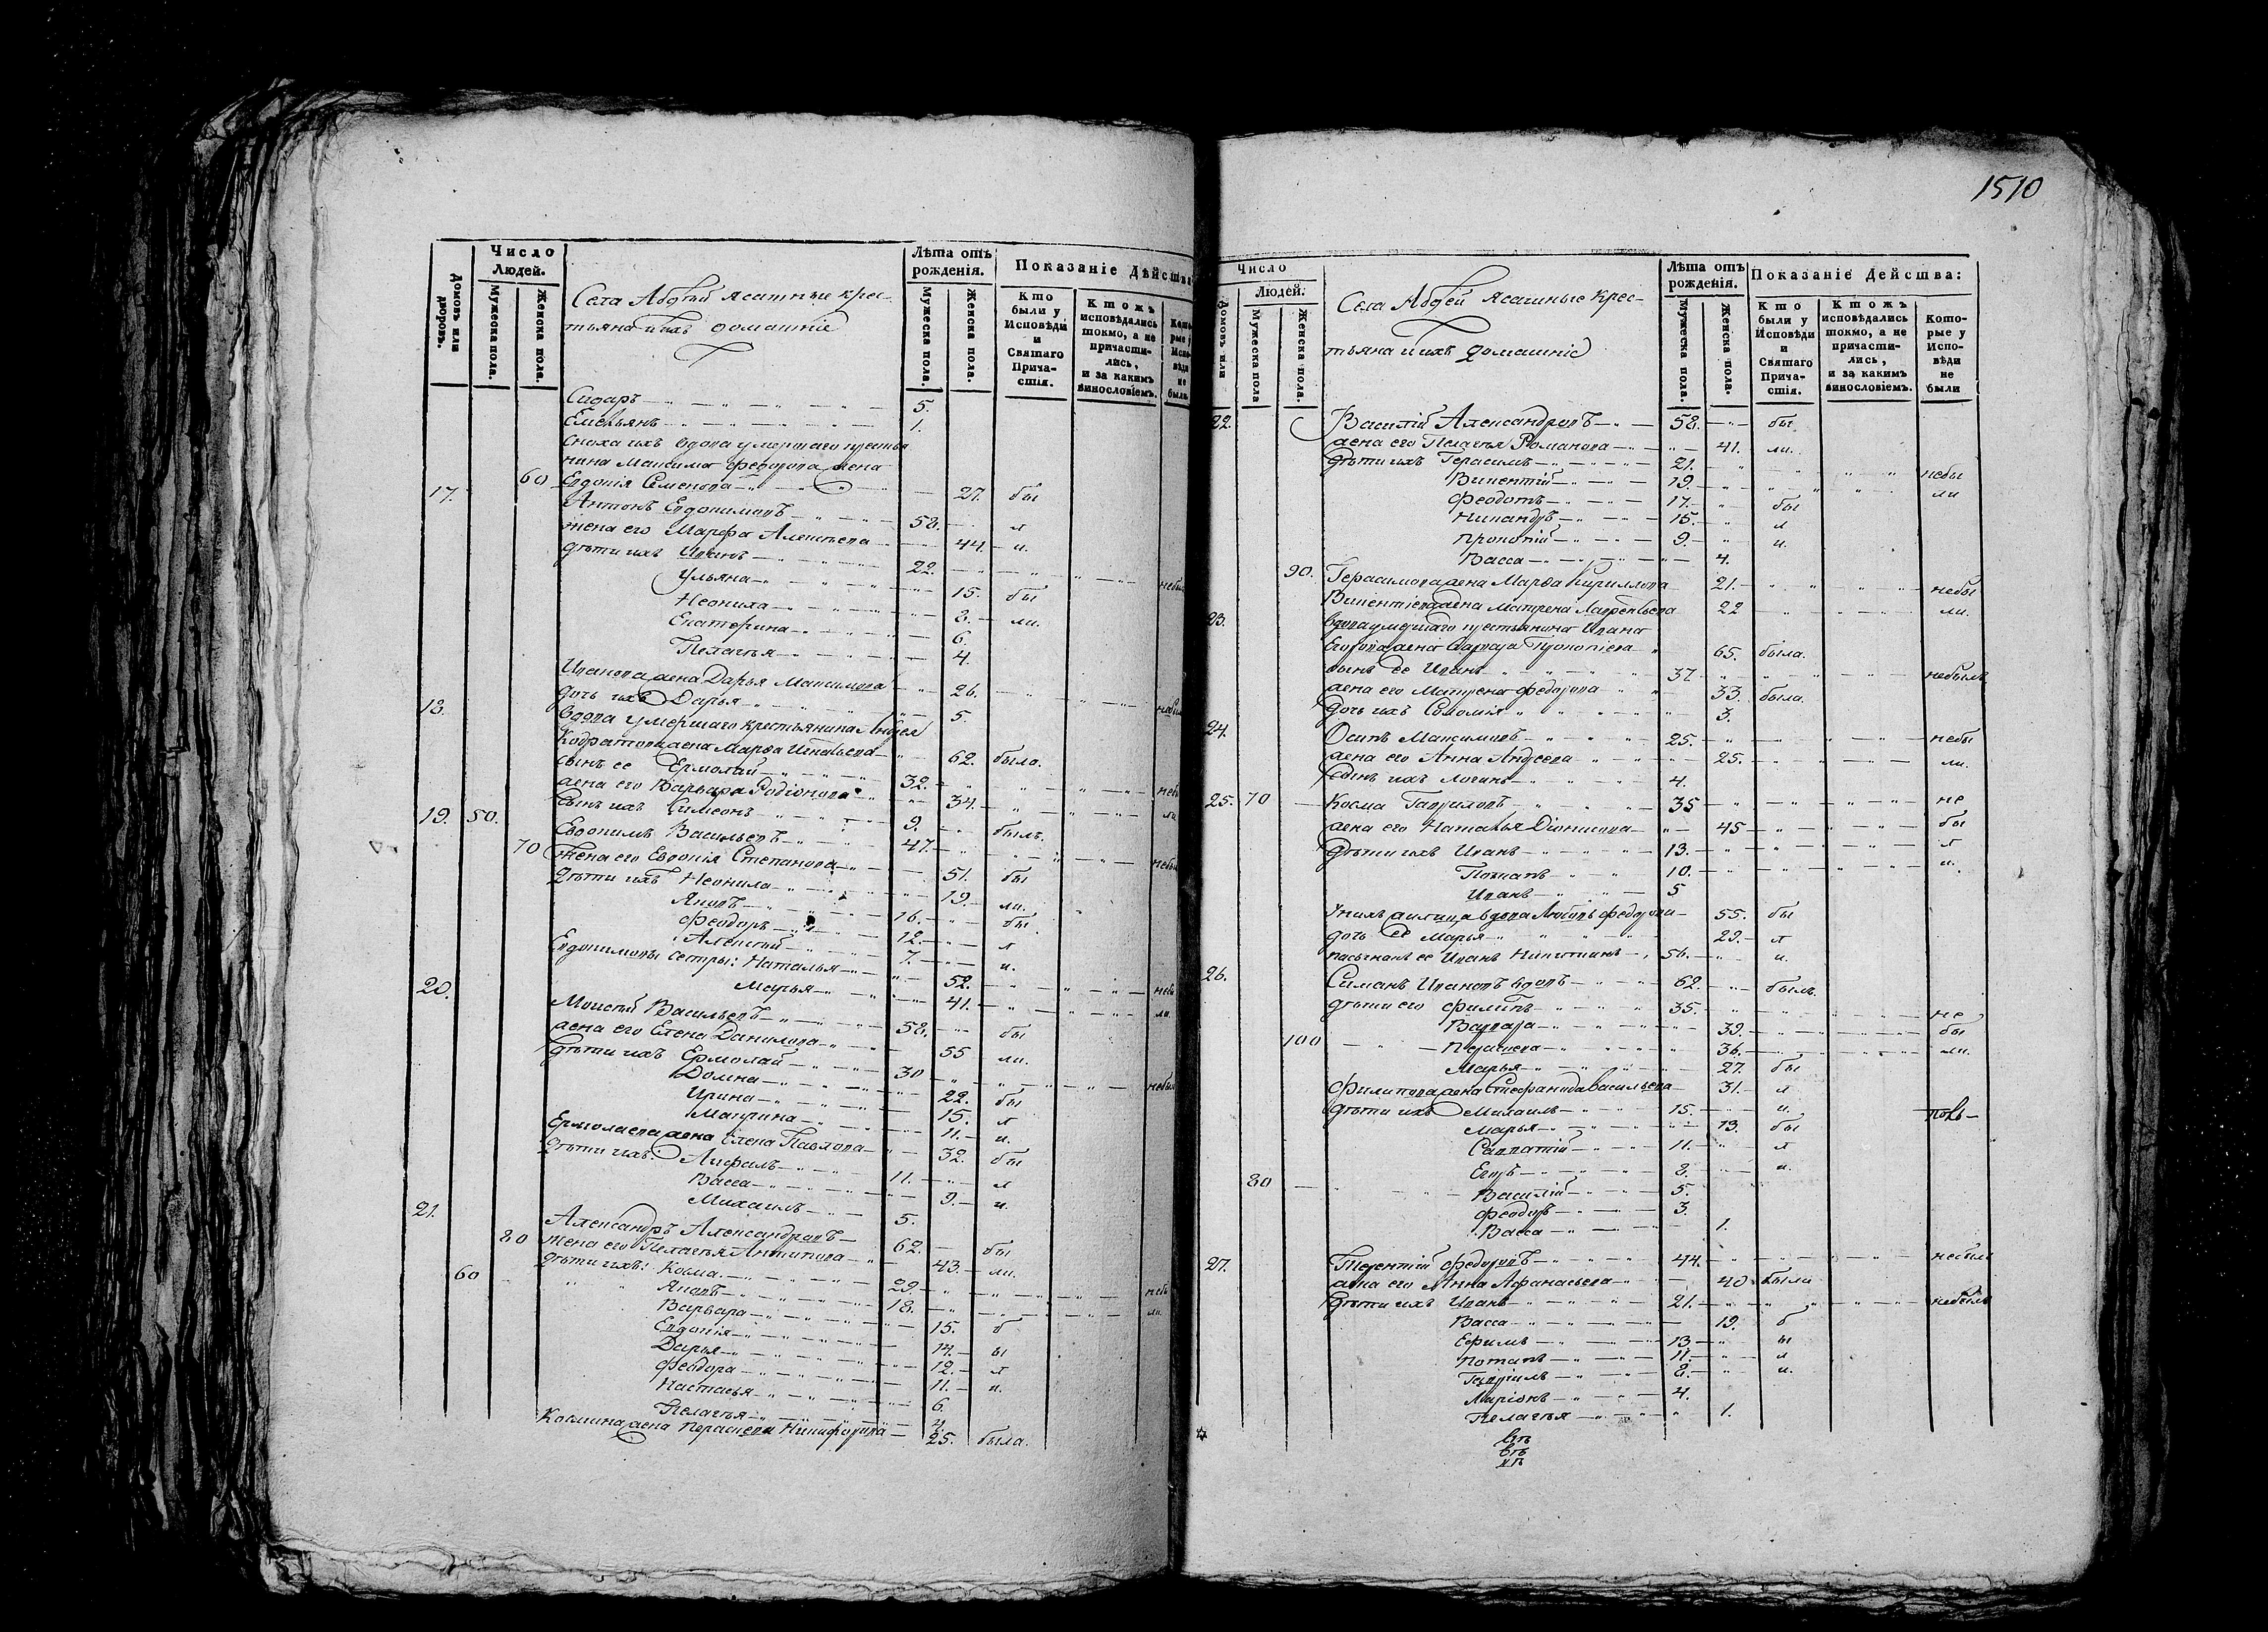 Число
Людей.
Лѣта отъ
рожденія.
Показаніе Дѣйства
Домовъ или
дворовъ.
Мужеска пола.
Женска пола.
Села Абдей ясашные крес-
тьяна и ихъ домашніе
Мужеска пола.
Женска пола.
Кто были у Исповѣди и Святаго Прича-стія.
Ктожъ исповѣдались токмо, а не причасти-лись, и за какимъ винословіемъ.
Сидоръ 5.
Емельянъ 1.
Сноха ихъ вдова умершаго крестья
нина Максима Федорова жена
60 Евдокія Семенова 27. бы
17. Антонъ Евдокимовъ 58. л
жена его Марфа Алексѣева 44. и.
дѣти ихъ Иванъ 22.
Ульяна 15. бы
Неонила 8. ли.
Екатерина 6.
Пелагья 4.
Иванова жена Дарья Максимова 26.
дочь ихъ Дарья 5.
18. вдова умершаго крестьянина Андрея
Кодратова жена Марфа Игнатьева 62. была.
сынъ ее Ермолай 32.
жена его Варвара Родіонова 34.
сынъ ихъ Симеонъ 9. былъ.
19. 50. Евдокимъ Васильевъ 47.
70 Жена его Евдокія Степанова 51. бы
дѣти ихъ Неонила 19. ли.
Яковъ 16. бы
Феодоръ 12. л
Алексѣй 7. и.
Евдокимовы сестры: Наталья 52.
Марья 41.
20. Моисей Васильевъ 58. бы
жена его Елена Данилова 55 ли.
дѣти ихъ Ермолай 30
Домна 22. бы
Ирина 15. л
Матрина 11. и.
Ермолаева жена Елена Павлова 32. бы
дѣти ихъ: 11. л
Васса 9. и.
Михаилъ 5.
21. Александръ Александровъ 62. бы
80 жена его Пелагья Антипова 43. ли.
дѣти ихъ: Косма 29.
60 Яковъ 18.
Варвара 15. б
Евдокія 14. ы
Дарья 12. л
Феодора 11. и.
Настасья 6.
Пелагья 4
Космина жена Параскева Никифорова 25. была.
1510
Число
Людей.
Лѣта отъ
рожденія.
Показаніе Дейсшва:
Домовъ или
Мужеска пола
Женска пола.
Села Абдей Ясашные крес-
тьяна и ихъ домашніе
Мужеска пола.
Женска пола.
Кто были у Исповѣди и Святаго Прича-стія.
Ктожъ исповѣдались токмо, а не причасти-лись, и за какимъ винословіемъ.
Кото-рые у Испо-вѣди не были
22. Василій Александровъ 58. бы
жена его Пелагья Романова 41. ли.
дѣти ихъ Герасимъ 21. небы
Викентій 19. ли
Феодотъ 17. бы
Никандръ 15. л
Прокопій 9. и.
Васса 4.
90. Герасимова жена Марфа Кириллова 21. небы
Викентіева жена Матрена Лаврентьева 22 ли.
23. вдова умершаго крестьянина Ивана
Егорова жена Варвара Прокопіева 65. была.
сынъ ее Иванъ 37 небылъ
жена его Матрена Федорова 33. была.
дочь ихъ Соломія 3.
24. Осипъ Максимовъ 25. небы
жена его Анна Андреева 25. ли.
сынъ ихъ Логинъ 4.
25. 70 Косма Гавриловъ 35 не
жена его Наталья Діонисова 45 бы
дѣти ихъ Иванъ 13. л
Потапъ 10. и.
Иванъ 5
вдова Любовь Федорова 55. бы
дочь ее Марья 29. л
пасынокъ ее Иванъ Никитинъ 56. и.
26. Симанъ Ивановъ вдовъ 62 былъ.
дѣти его Филипъ 35. не
Варвара 39. бы
100 Параскева 36. ли.
Марья 27. бы
Филипова жена Стефанида Васильева 31. л
дѣти ихъ Михаилъ 15. и.
Марья 13. бы
Савватій 11. л
Егоръ 8. и.
80 Василій 5.
Феодоръ 3.
Васса 1.
27. Терентій Федоровъ 44. небылъ
жена его Анна Афанасьева 40 была
дѣти ихъ Иванъ 21. небылъ
Васса 19. б
Ефимъ 13 ы
Потапъ 11. л
Гавріилъ 8. и.
Ларіонъ 4.
Пелагья 1.